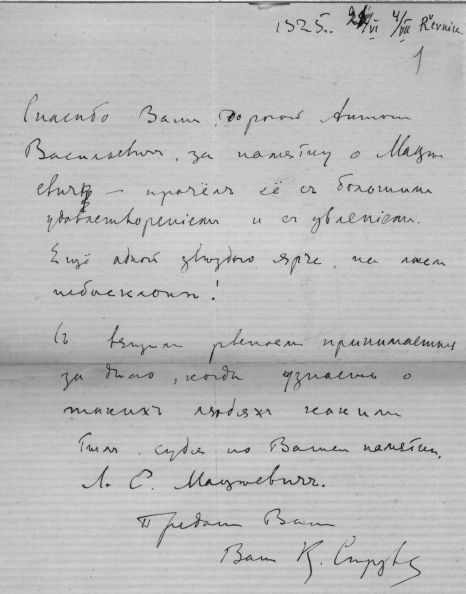 1925. 21/VI 4/VII Řevnice.
1
Спасибо Вамъ, дорогой Антонъ
Васильевичъ, за памятку о Мацѣ-
евичѣ — прочёлъ её съ большимъ
удовлетворенiемъ и съ
Ещё одной звѣздою ярче на
небосклонѣ!
Съ рвенiем принимаешься
за дѣло, когда узнаешь о
такихъ людяхъ какимъ
былъ, судя по Вашей памятки,
Л. С. Мацѣевичъ.
Преданъ Вамъ
Ваш